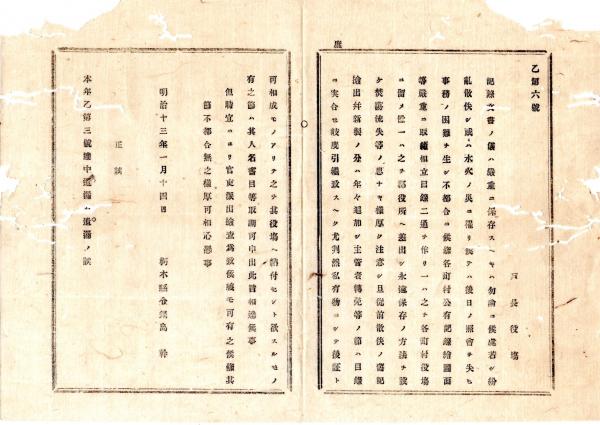 乙第六號
戸長役塲
記録文書ノ儀ハ嚴重ニ保存スヘキハ勿論ニ候處若シ紛
亂散佚シ或ハ水火ノ災ニ罹リ候テハ後日ノ照會ヲ失ヒ
事務ノ困難ヲ生シ不都合ニ候條各町村公有記録繪圖面
等嚴重ニ取纏相立目録二通ヲ作リ一ハ之ヲ各町村役塲
ニ留メ他一ハ之ヲ郡役所ヘ差出シ永遠保存ノ方法ヲ設
ケ焚燬流失等ノ患ナキ樣厚ク注意シ且従前散佚ノ舊記
搜出并新製ノ分ハ年々追加シ主管者轉免等ノ節ハ目録
ニ突合セ屹度引繼致スヘク尤判然私有物ニシテ後証ト
可相成モノアリテ之ヲ其役塲ヘ納付セント欲スルモノ
有之節ハ其人名書目等取調可申出此旨相達候事
但時宜ニヨリ官吏派出檢査爲致候儀モ可有之候條其
節不都合無之樣厚可相心得事
明治十三年一月十四日
栃木縣令鍋島 幹
正誤
本年乙第三號達中遺漏ハ遺漏ノ誤